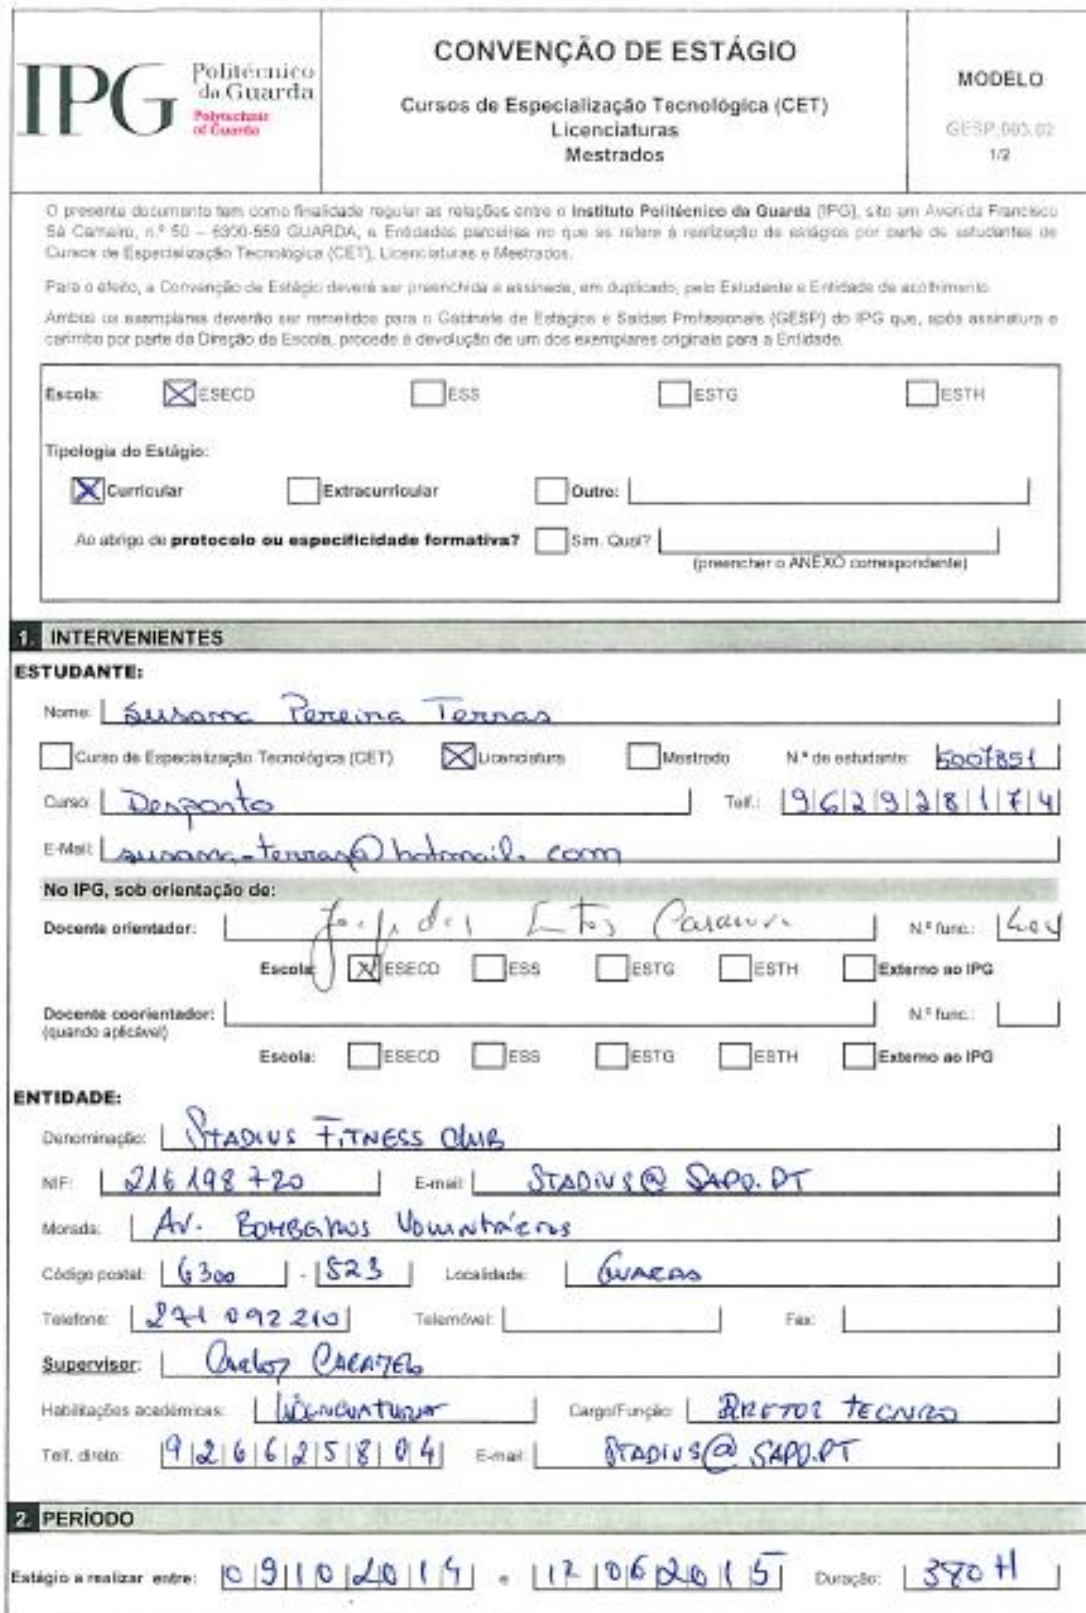 IPG Politécnico da Guarda
Polytechnic of Guarda
CONVENÇÃO DE ESTÁGIO
Cursos de Especialização Tecnológica (CET)
Licenciaturas
Mestrados
MODELO
GESP.003.02
1/2
O presente documento tem como finalidade regular as relações entre o Instituto Politécnico da Guarda (IPG), sito em Avenida Francisco
Sá Carneiro, n.º 50 – 6300-559 GUARDA, e Entidades parceiras no que se refere à realização de estágios por parte de estudantes de
Cursos de Especialização Tecnológica (CET), Licenciaturas e Mestrados.
Para o efeito, a Convenção de Estágio deverá ser preenchida e assinada, em duplicado, pelo Estudante e Entidade de acolhimento
Ambos os exemplares deverão ser remetidos para o Gabinete de Estágios e Saídas Profissionais (GESP) do IPG que, após assinatura e
carimbo por parte da Direção da Escola, procede à devolução de um dos exemplares originais para a Entidade.
Escola: X ESECD ESS ESTG ESTH
Tipologia do Estágio:
X Curricular Extracurricular Outro:
Ao abrigo de protocolo ou especificidade formativa? Sim. Qual?
(preencher o ANEXO correspondente)
1. INTERVENIENTES
ESTUDANTE:
Nome: Susana Pereira Terras
Curso de Especialização Tecnológica (CET) X Licenciatura Mestrado N.º de estudante: 5007851
Curso: Desporto Telf.: 962928174
E-Mail: susana-terras@hotmail.com
No IPG, sob orientação de:
Docente orientador: N.º func.:
Escola: X ESECD ESS ESTG ESTH Externo ao IPG
Docente coorientador: N.º func.:
(quando aplicável)
Escola: ESECD ESS ESTG ESTH Externo ao IPG
ENTIDADE:
Denominação: STADIUS FITNESS CLUB
NIF: 216198720 E-mail: STADIUS@SAPO.PT
Morada: AV. BOMBEIROS VOLUNTÁRIOS
Código postal: 6300 - 523 Localidade: GUARDA
Telefone: 271 092 210 Telemóvel: Fax:
Supervisor: Carlos CARAMELO
Habilitações académicas: LICENCIATURA Cargo/Função: DIRETOR TECNICO
Telf. direto: 926625804 E-mail: STADIUS@SAPO.PT
2. PERÍODO
Estágio a realizar entre: 09102014 e 12062015 Duração: 380 H